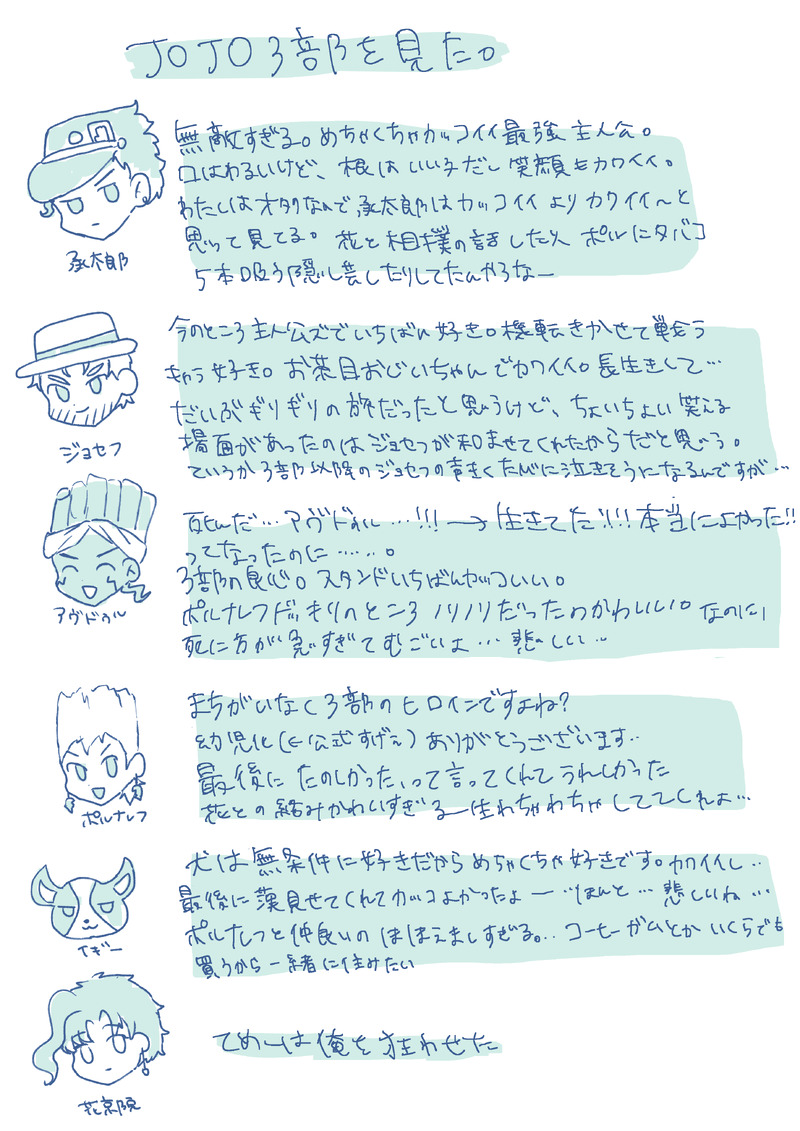 JOJO3部を見た。
無敵すぎる。めちゃくちゃカッコイイ最強主人公。
口はわるいけど、根はいい子だし笑顔もカワイイ。
わたしはオタクなので、承太郎はカッコイイよりカワイイ〜と
思って見てる。花と相撲の話したり、ポルにタバコ
5本吸う隠し芸したりしてたんかろなー
承太郎
今のところ主人公ズでいちばん好き。機転きかせて戦う
キャラ好き。お茶目おじいちゃんでカワイイ。長生きして…
だいぶギリギリの旅だったと思うけど、ちょいちょい笑える
場面があったのはジョセフが和ませてくれたからだと思う。
ていうか3部以降のジョセフの声きくたびに泣きそうになるんですが…
ジョセフ
死んだ…アヴドゥル…!!!→生きてた!!!本当によかった!!
ってなったのに……。
3部の良心。スタンドいちばんカッコいい。
ポルナレフドッキリのところノリノリだったのかわいい。なのに
死に方が急すぎてむごいよ…悲しい…
アヴドゥル
まちがいなく3部のヒロインですよね?
幼児化(←公式すげぇ)ありがとうございます…
最後にたのしかった、って言ってくれてうれしかった
花との絡みかわいすぎるー一生わちゃわちゃしててくれよ…
ポルナレフ
犬は無条件に好きだからめちゃくちゃ好きです。カワイイし…
最後に漢見せてくれてカッコよかったよー…ほんと…悲しいね…
ポルナレフと仲良いのほほえましすぎる。…コーヒーガムとかいくらでも
買うから一緒に住みたい
イギー
てめーは俺を狂わせた
花京院